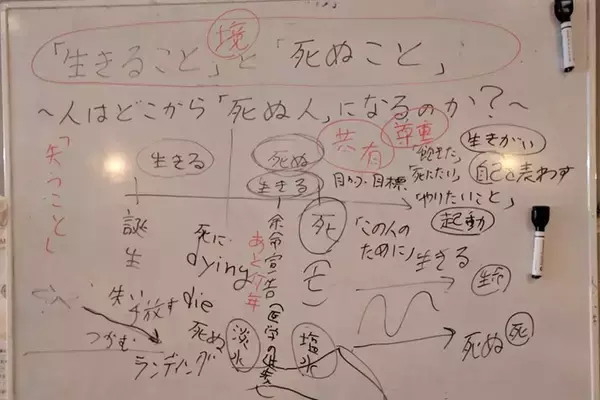 「生きること」と「死ぬこと」
境
～人はどこから「死ぬ人」になるのか?～
「失うこと」
生きる
死ぬ
生きる
共有
尊重
生きがい
「死にたい」
自己を表わす
目的・目標
「やりたいこと」
起動
誕生
死に
dying
die
死ぬ
あと1年
余命宣告
死
(亡)
「この人の
ために」
生きる
生
死ぬ
死
失い
手放す
つかむ
ランディング
淡水
塩水